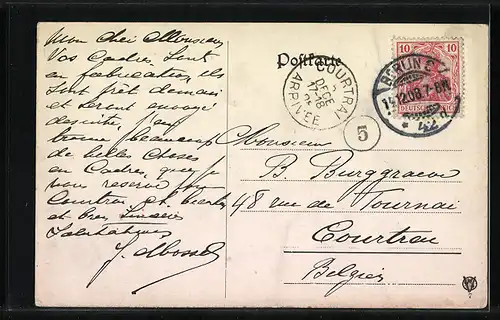 Mon cher Monsieur
Vos Cadres Sont
en fabrication ils
Sont prêt demain
et seront envoyé
de suite, j'ai
trouvé beaucoup
de belles choses
en Cadres que je
vous reserve pour
Courtrai et
et bien
Salutations
Postkarte
COURTRAI
17-18
DECE
ARRIVEE
5
10 10
DEUTSCHES
BERLIN
14.12.08.7-8N.
Monsieur
B Burggraeve
48 rue de Tournai
Courtrai
Belgien